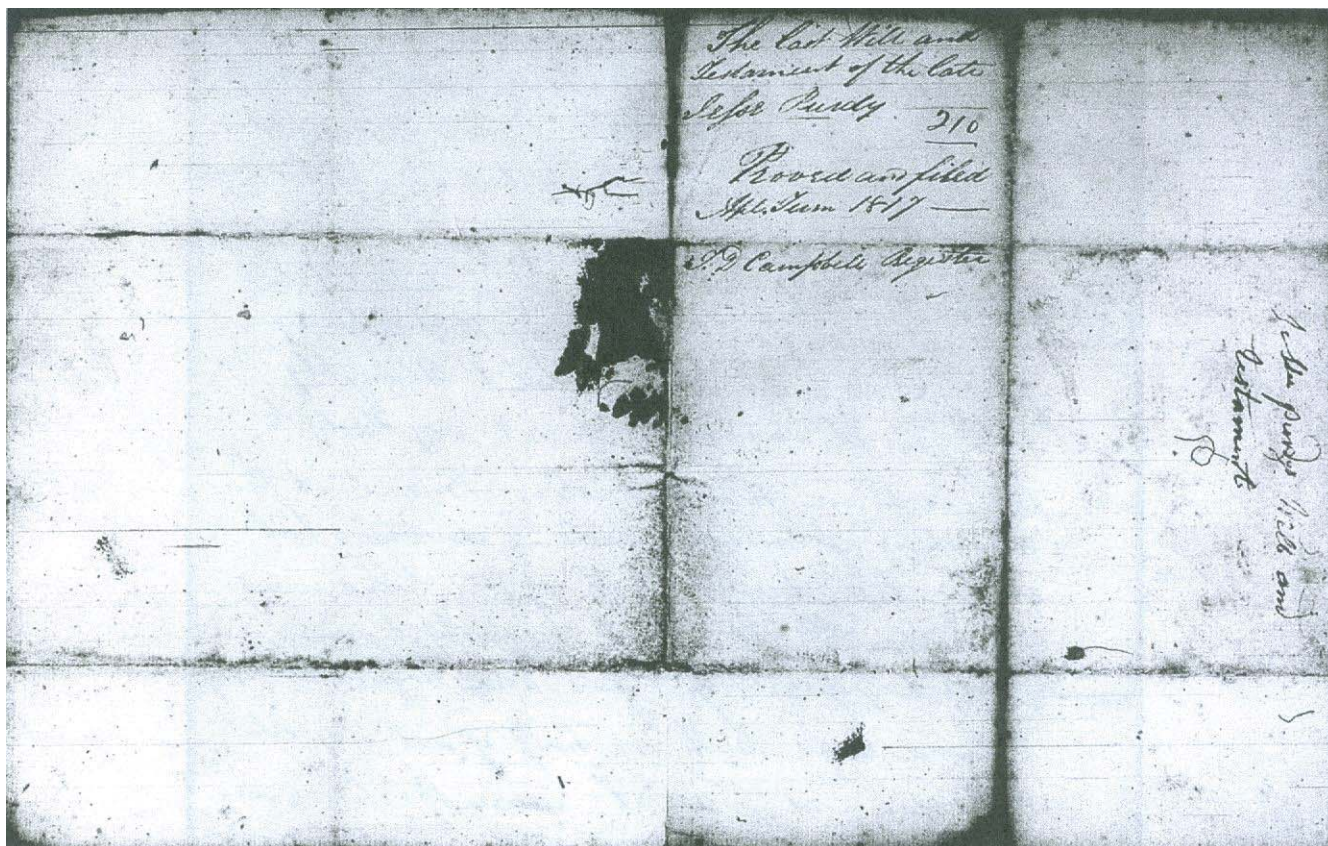 The last Will and
Testament of the late
Jesse Purdy
210
Proved and filed
Apl. Term 1817
J. D Campbell Register
Jesse Purdys Will and
Testament